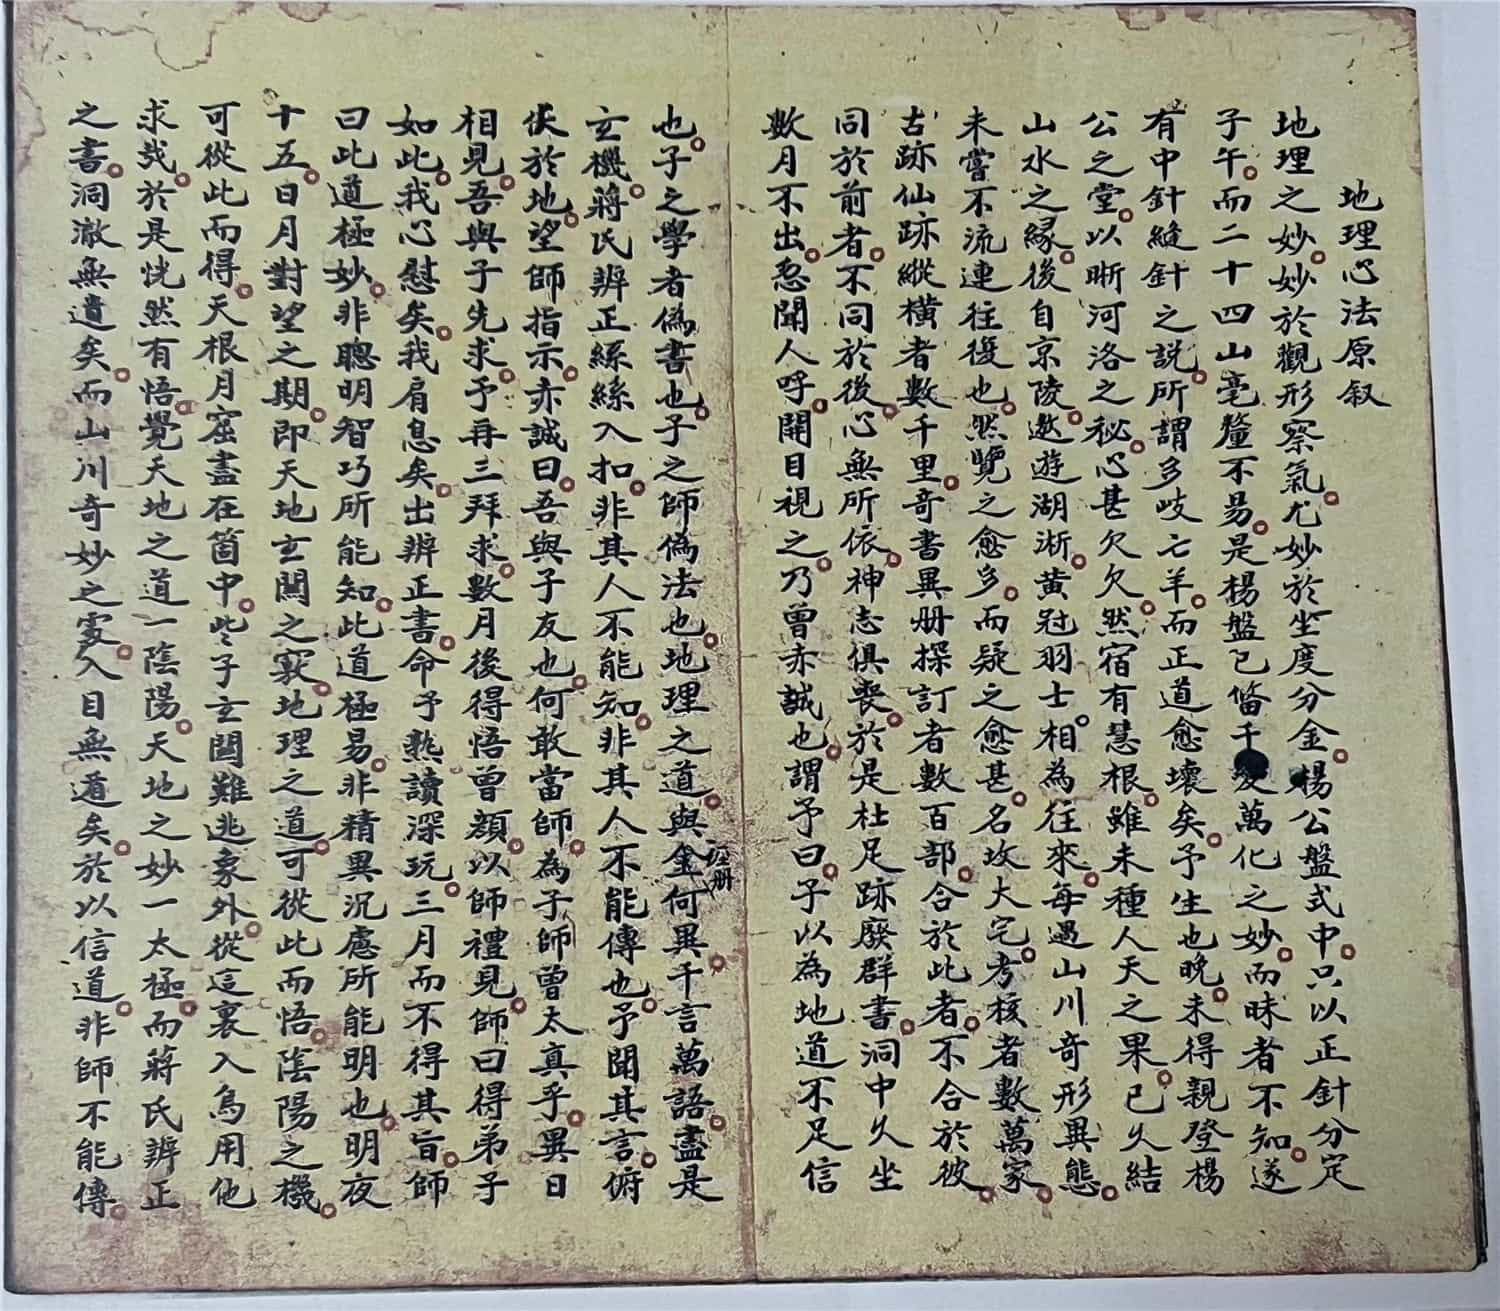 地理心法原叙
地理之妙妙於觀形察氣尤妙於坐度分金楊公盤式中只以正針分定
子午而二十四山毫釐不易是楊盤已俻千變萬化之妙而昧者不知遂
有中針縫針之説所謂多岐亡羊而正道愈壞矣予生也晚未得親登楊
公之堂以晰河洛之秘心甚欠欠然宿有慧根雖未種人天之果已久結
山水之縁後自京陵遨遊湖淅黄冠羽士相為往來每遇山川奇形異態
未嘗不流連往復也然覽之愈多而疑之愈甚名坟大宅考核者數萬家
古跡仙跡縱橫者數千里奇書異册探訂者數百部合於此者不合於彼
同於前者不同於後心無所依神志俱喪於是杜足跡廢群書洞中久坐
數月不出忽聞人呼開目視之乃曾赤誠也謂予曰子以為地道不足信
也子之學者偽書也子之師偽法也地理之道與金何異千言萬語盡是
經册
玄機蔣氏辨正絲絲入扣非其人不能知非其人不能傳也予聞其言俯
伏於地望師指示亦誠曰吾與子友也何敢當師為子師曾太真乎異日
相見吾與子先求予再三拜求數月後得悟曾顔以師禮見師曰得弟子
如此我心慰矣我肩息矣出辨正書命予熟讀深玩三月而不得其旨師
曰此道極妙非聰明智巧所能知此道極易非精異沉慮所能明也明夜
十五日月對望之期即天地玄関之竅地理之道可從此而悟隂陽之機
可從此而得天根月窟盡在箇中些子玄関難逃象外從這裏入焉用他
求㢤於是恍然有悟覺天地之道一隂陽天地之妙一太極而蔣氏辨正
之書洞澈無遺矣而山川奇妙之處入目無遁矣於以信道非師不能傳